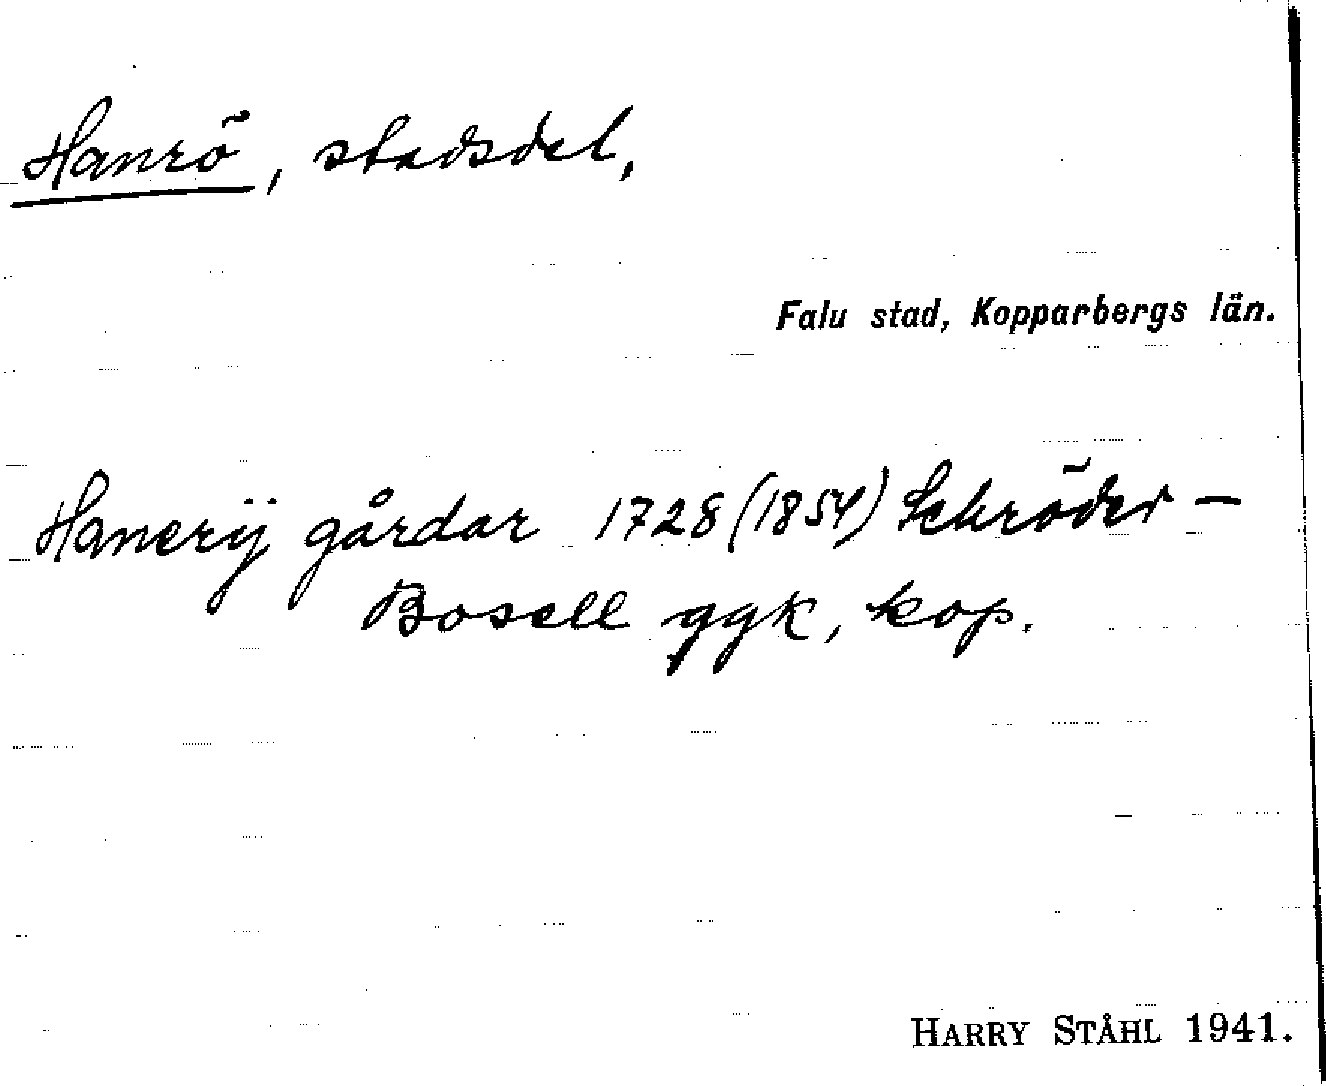 Hanrö, stadsdel,
Falu stad, Kopparbergs län.
Hanerÿ gårdar 1728 (1854) Schröder –
Bosell ggk, kop.
HARRY STÅHL 1941.